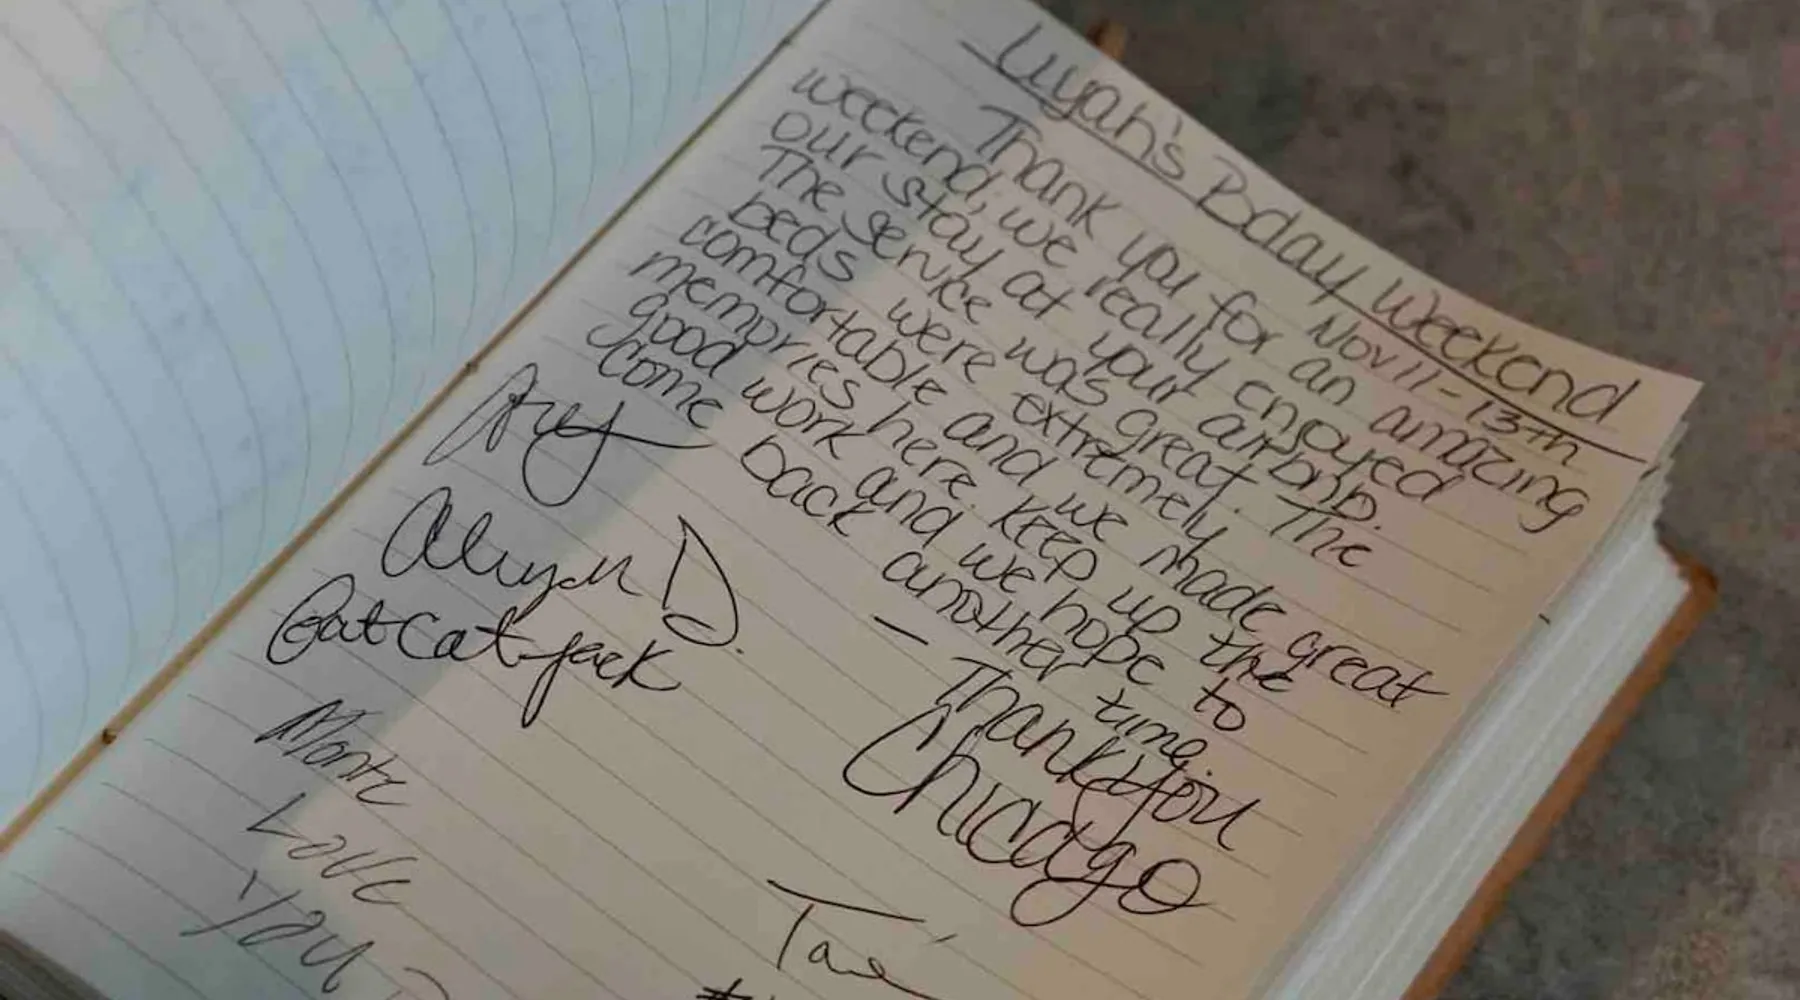 Liyah's Bday Weekend
Nov 11 - 13th
Thank you for an amazing
weekend, we really enjoyed
our stay at your airbnb.
The service was great. The
beds were extremely
comfortable and we made great
memories here. Keep up the
good work and we hope to
come back another time.
- Thank you
Chicago
Aliyah D.
Fatcatjack
Monte
Love
You